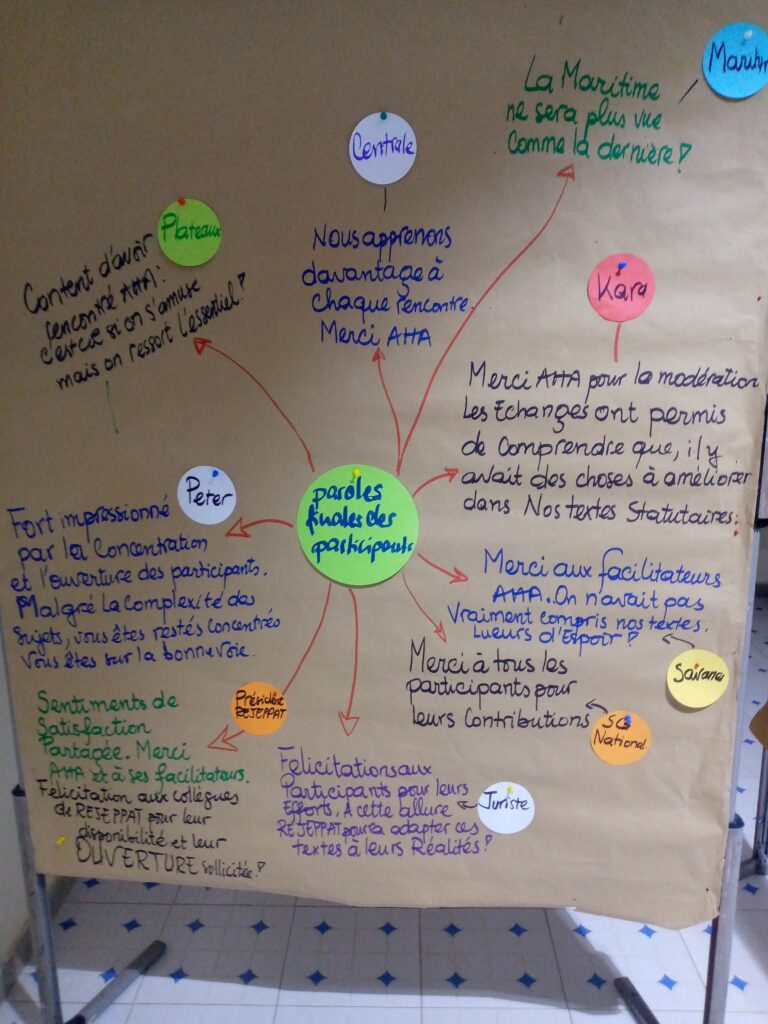 paroles
finales des
participants
Maritim
La Maritime
ne sera plus vue
comme la dernière !
Centrale
Nous apprenons
davantage à
chaque rencontre.
Merci AHA
Plateaux
Content d'avoir
rencontré AHA :
c'est comme si on s'amuse
mais on ressort l'essentiel !
Kara
Merci AHA pour la modération
Les Echanges ont permis
de Comprendre que, il y
avait des choses à améliorer
dans Nos textes Statutaires.
Peter
Fort impressionné
par la Concentration
et l'ouverture des participants.
Malgré la Complexité des
Sujets, vous êtes restés concentrés
Vous êtes sur la bonne voie.
Merci aux facilitateurs
AHA. On n'avait pas
Vraiment compris nos textes.
Lueurs d'Espoir !
Merci à tous les
participants pour
leurs Contributions
SG
National
Président
RESEPPAT
Sentiments de
Satisfaction
Partagée. Merci
AHA et à ses facilitateurs.
Felicitation aux collègues
de RESEPPAT pour leur
disponibilité et leur
OUVERTURE sollicitée !
Juriste
Felicitations aux
Participants pour leurs
Efforts, A cette allure
RESEPPAT pourra adapter ces
textes à leurs Réalités !